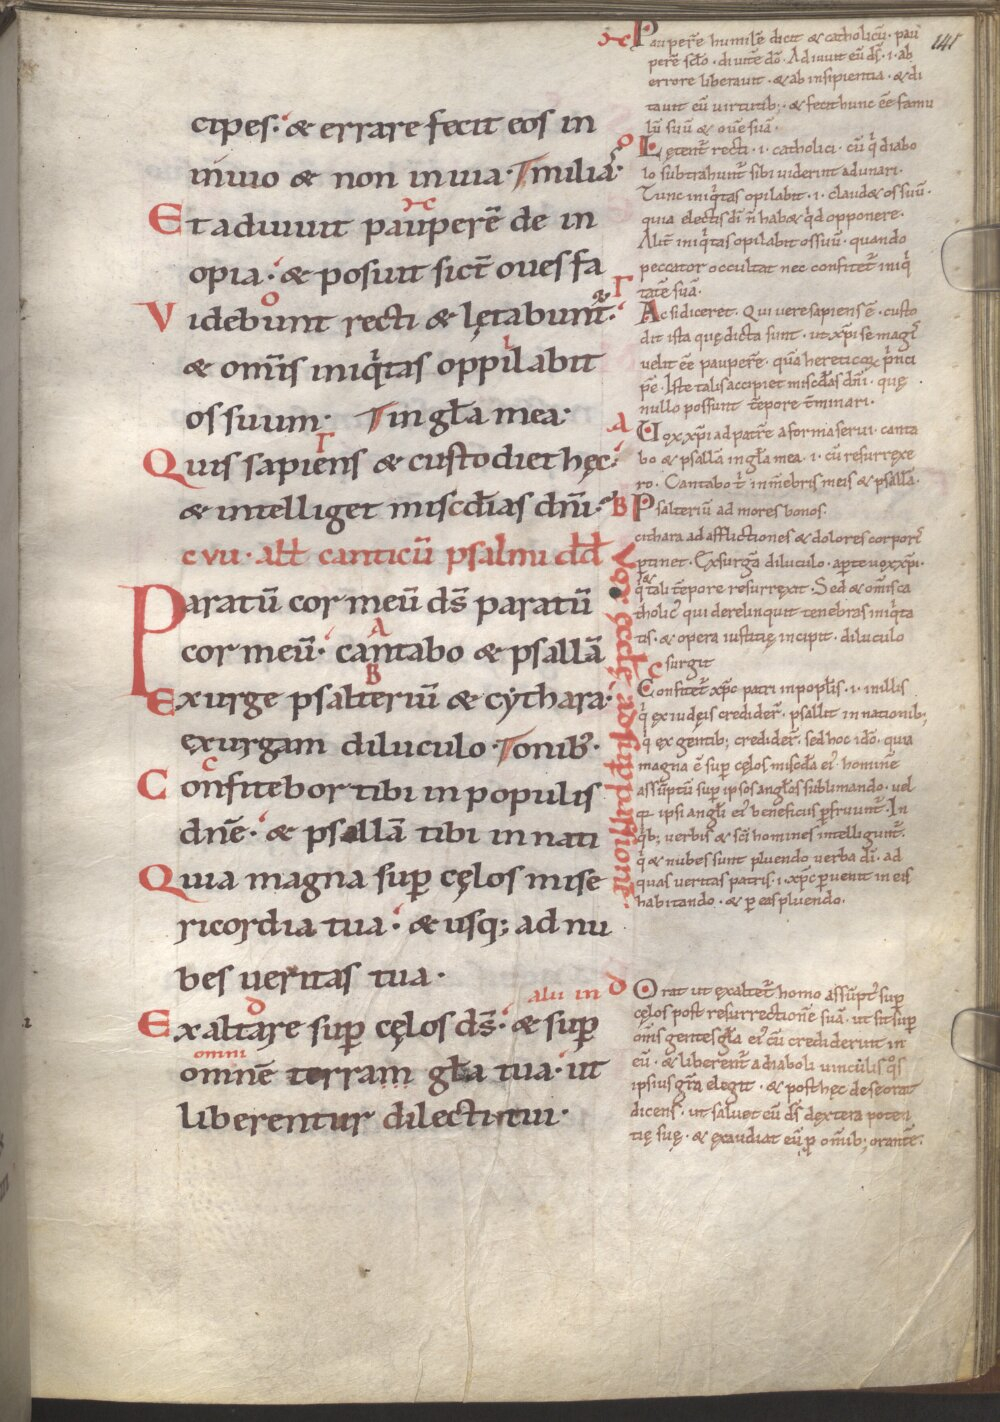 141
cipes· & errare fecit eos in
inuio & non in uia· milia
Et adiuuit pauperē de in
opia· & posuit sicut oues fa
Videbunt recti & lętabunt̄·
& om̄is iniq̇tas oppilabit
os suum· in gl̄a mea·
Quis sapiens & custodiet hęc
& intelliget misc̄dias dn̄i·
cvii· all̄ canticū psalmi dd̄
Paratū cor meū ds̄ paratū
cor meū· cantabo & psallā
Exurge psalteriū & cythara·
exurgam diluculo·
Confitebor tibi in populis
dn̄e· & psallā tibi in nati
onib;·
Quia magna sup̄ cęlos mise
ricordia tua· & usq; ad nu
bes ueritas tua·
alii in
Exaltare sup̄ cęlos ds̄· & sup̄
omni
omnē terram gl̄a tua· ut
liberentur dilecti tui·
Pauperē humilē dicit & catholicū· pau
perē scl̄o· diuitē dō· Adiuuit eū ds̄·i· ab
errore liberauit· & ab insipientia· & di
tauit eū uirtutib;· & fecit hunc eē famu
lū suū & ouē suā·
Lętent̄ recti·i· catholici· cū q̇ diabo
lo subtrahunt̄ sibi uiderint adunari·
Tunc iniq̇tas opilabit·i· claud& os suū·
quia electis dī n̄ hab& q̇d opponere·
Alit̄ iniq̇tas opilabit os suū· quando
peccator occultat nec confitet̄ iniq̇
tatē suā·
Ac si diceret· Qui uere sapiens ē· custo
dit ista quę dicta sunt· ut xp̄i se magi
uelit eē pauperē· quā hereticox p̄nci
pē· Iste talis accipiet misc̄das dn̄i· quę
nullo possunt tēpore t̄minari·
Uox xp̄i ad patrē a forma serui· canta
bo & psallā in gl̄a mea·i· cū resurrexe
ro· Cantabo t̄ in mēbris meis & psallā·
Psalteriū ad mores bonos·
cithara ad afflictiones & dolores corpori
p̄tinet· Exsurgā diluculo· ap̄te uox xp̄i·
q̇ tali tēpore resurrexit· Sed & om̄is ca
tholic' qui derelinquit tenebras iniq̇ta
tis· & opera iustitię incipit· diluculo
exsurgit
Confitet̄ xp̄c patri in popl̄is·i· in illis
q̇ ex iudęis credider̄· psallit in nationib;
q̇ ex gentib; credider̄· sed hoc idō· quia
magna ē sup̄ cęlos misc̄dā ei' hominē
assūptū sup̄ ipsos angl̄os sublimando· uel
q̄ ipsi angl̄i ei' beneficus p̄fruunt̄· In
q̇b; uerbis & sc̄i homines intelligunt̄·
q̇ & nubes sunt pluendo uerba dī· ad
quas ueritas patris·i·xp̄c p̄uenit in eis
habitando· & p̄ eas pluendo·
Orat ut exaltet̄ homo assūpt' sup̄
cęlos post resurrectionē suā· ut sit sup̄
om̄s gentes gl̄a ei' cū crediderint in
eū· & liberent̄ a diaboli uinculis q°s
ipsius gr̄a elegit· & post hęc de se orat
dicens· ut saluet eū ds̄ dextera poten
tię suę· & exaudiat eū p̄ om̄ib; orantē·